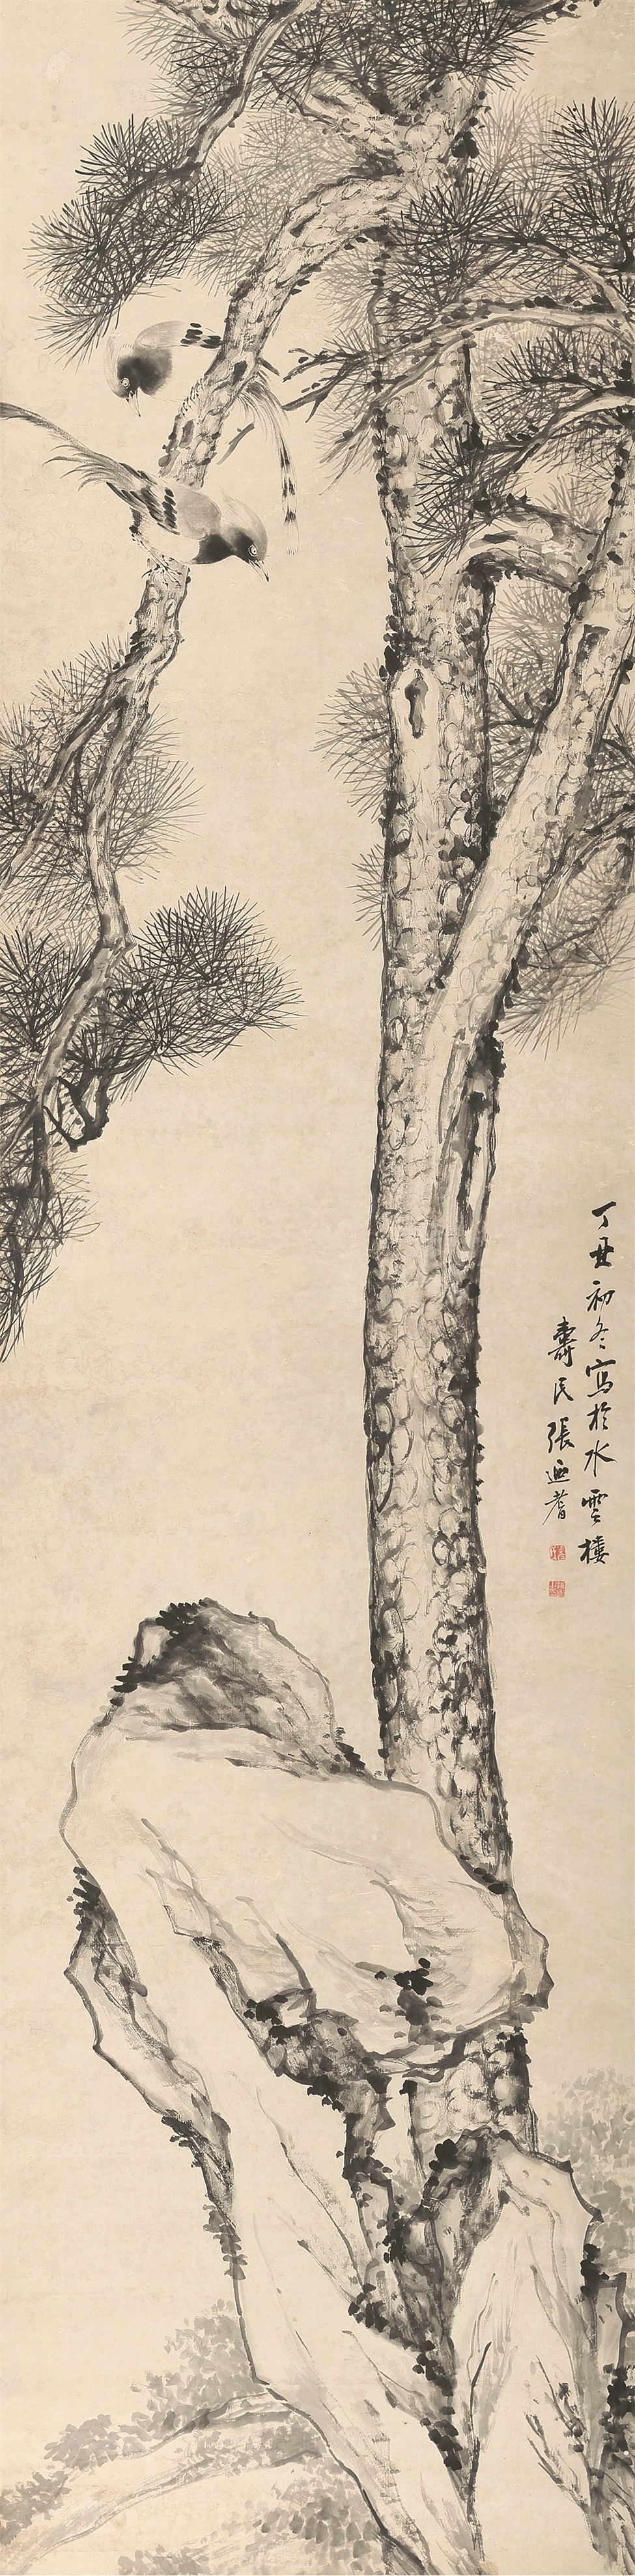 丁丑初冬寫於水雲樓
壽民張逎耆